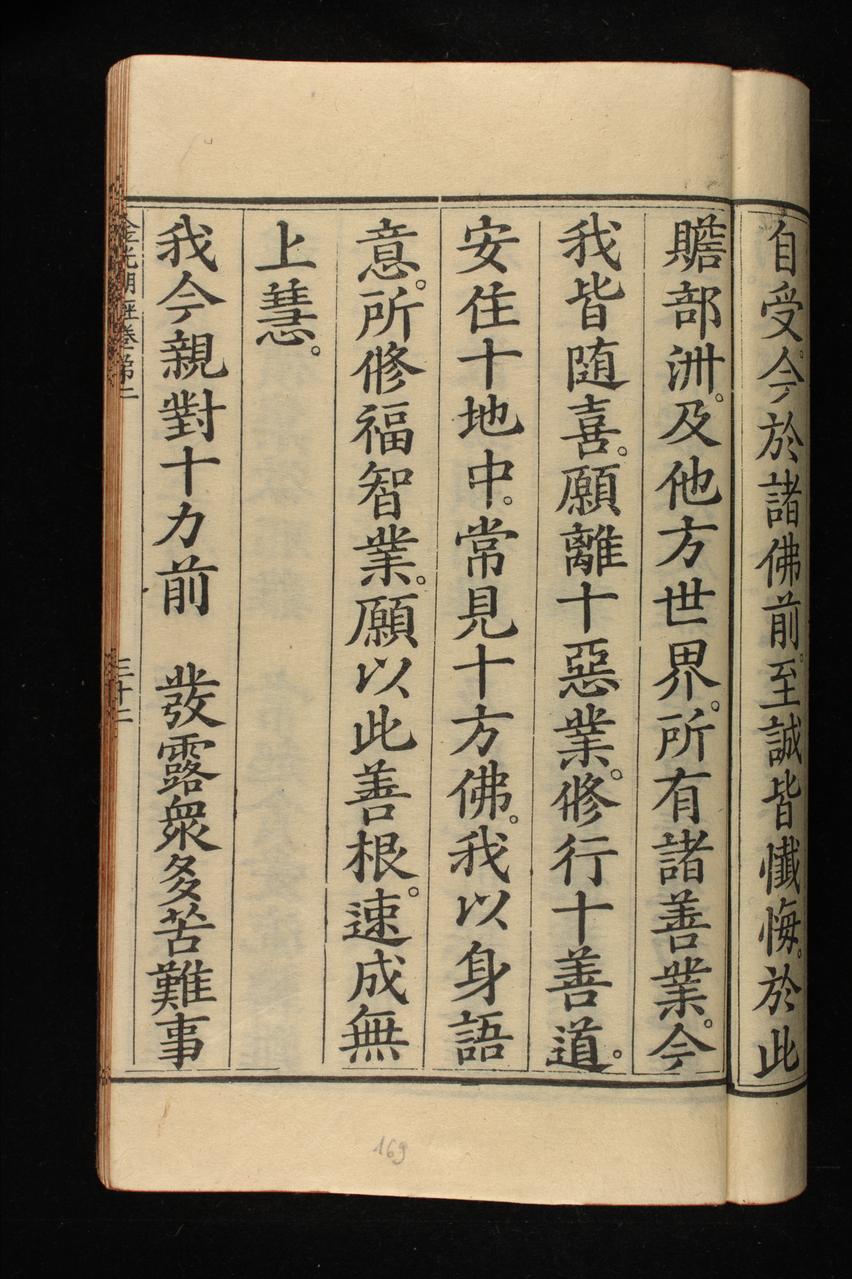 自受。今於諸佛前。至誠皆懺悔。於此
贍部洲。及他方世界。所有諸善業。今
我皆随喜。願離十惡業。修行十善道。
安住十地中。常見十方佛。我以身語
意。所修福智業。願以此善根。速成無
上慧。
我今親對十力前　發露衆多苦難事
金光明經卷第二
三十二
169